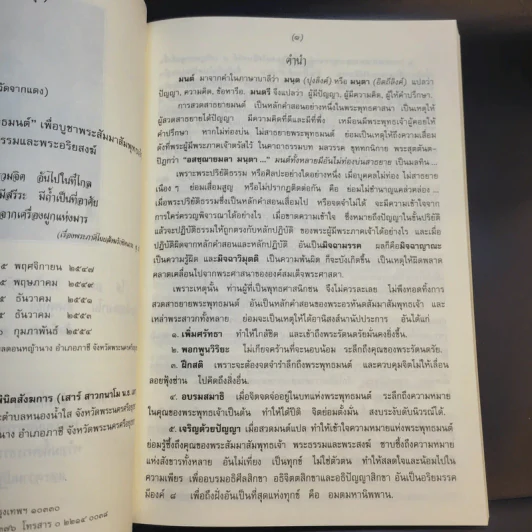 วัดจากแดง)
ธมนต์" เพื่อบูชาพระสัมมาสัมพุทธ
ธรรมและพระอริยสงฆ์
คิด อันไปในที่ไกล
มีสรีระ มีถ้ำเป็นที่อาศัย
จากเครื่องผูกแห่งมาร
๕ พฤศจิกายน ๒๕๔๗
๕ พฤษภาคม ๒๕๔๙
๕ ธันวาคม ๒๕๕๑
๕ ธันวาคม ๒๕๕๓
๖ กุมภาพันธ์ ๒๕๕๔
พินิตสังฆการ (เสาร์ สาวกนาโม น.ธ.
ตำบลหนองน้ำใส จังหวัดพระนครศรีอยุธ
นาง อำเภอภาชี จังหวัดพระนครศรีอยุธ
กรุงเทพฯ ๑๐๓๓๐
๓๘๖ โทรสาร ๐ ๒๒๑๔ ๐๐๓๘
(๑)
คำนำ
มนต์ มาจากคำในภาษาบาลีว่า มนฺต (ปุงลิงค์) หรือ มนฺตา (อิตถีลิงค์) แปลว่า
ปัญญา, ความคิด, ข้อหารือ. มนตรี จึงแปลว่า ผู้มีปัญญา, ผู้มีความคิด, ผู้ให้คำปรึกษา.
การสวดสาธยายมนต์ เป็นหลักคำสอนอย่างหนึ่งในพระพุทธศาสนา เป็นเหตุให้
ผู้สวดสาธยายได้ปัญญา มีความคิดที่ดีและมีที่พึ่ง เหมือนมีพระพุทธเจ้าผู้คอยให้
คำปรึกษา หากไม่ท่องบ่น ไม่สาธยายพระพุทธมนต์ ย่อมเป็นเหตุให้ถึงความเสื่อม
ดังที่พระผู้มีพระภาคเจ้าตรัสไว้ ในคาถาธรรมบท มลวรรค ขุททกนิกาย พระสุตตันต-
ปิฎกว่า "อสชฺฌายมลา มนฺตา ..." มนต์ทั้งหลายมีอันไม่ท่องบ่นสาธยาย เป็นมลทิน ...
เพราะพระปริยัติธรรม หรือศิลปะอย่างใดอย่างหนึ่ง เมื่อบุคคลไม่ท่อง ไม่สาธยาย
เนือง ๆ ย่อมเสื่อมสูญ หรือไม่ปรากฏติดต่อกัน คือ ย่อมไม่ชำนาญแคล่วคล่อง ...
เมื่อพระปริยัติธรรมซึ่งเป็นหลักคำสอนเสื่อมไป หรือจดจำไม่ได้ จะมีความเข้าใจจาก
การใคร่ครวญพิจารณาได้อย่างไร เมื่อขาดความเข้าใจ ซึ่งหมายถึงปัญญาในขั้นปริยัติ
แล้วจะปฏิบัติธรรมให้ถูกตรงกับหลักปฏิบัติ ของพระผู้มีพระภาคเจ้าได้อย่างไร และเมื่อ
ปฏิบัติผิดจากหลักคำสอนและหลักปฏิบัติ อันเป็นมิจฉามรรค ผลก็คือมิจฉาญาณะ
เป็นความรู้ผิด และมิจฉาวิมุตติ เป็นความพ้นผิด ก็จะบังเกิดขึ้น เป็นเหตุให้ผิดพลาด
คลาดเคลื่อนไปจากพระศาสนาขององค์สมเด็จพระศาสดา.
เพราะเหตุนั้น ท่านผู้ที่เป็นพุทธศาสนิกชน จึงไม่ควรละเลย ไม่พึงทอดทิ้งการ
สวดสาธยายพระพุทธมนต์ อันเป็นหลักคำสอนของพระอรหันตสัมมาสัมพุทธเจ้า และ
เหล่าพระสาวกทั้งหลาย ย่อมจะเป็นเหตุให้ได้อานิสงส์นานัปประการ อันได้แก่
๑. เพิ่มศรัทธา ทำให้ใกล้ชิด และเข้าถึงพระรัตนตรัยมั่นคงยิ่งขึ้น.
๒. พอกพูนวิริยะ ไม่เกียจคร้านที่จะนอบน้อม ระลึกถึงคุณของพระรัตนตรัย.
๓. ฝึกสติ เพราะจะต้องจดจำรำลึกถึงพระพุทธมนต์ และควบคุมจิตไม่ให้เลื่อน
ลอยฟุ้งซ่าน ไปคิดถึงสิ่งอื่น.
๔. อบรมสมาธิ เมื่อจิตจดจ่ออยู่ในบทแห่งพระพุทธมนต์ ระลึกถึงความหมาย
ในคุณของพระพุทธเจ้าเป็นต้น ทำให้ได้ปีติ จิตย่อมตั้งมั่น สงบระงับดับนิวรณ์ได้.
๕. เจริญด้วยปัญญา เมื่อสวดมนต์แปล ทำให้เข้าใจความหมายแห่งพระพุทธมนต์
ย่อมรู้ซึ้งถึงคุณของพระสัมมาสัมพุทธเจ้า พระธรรมและพระสงฆ์ ซาบซึ้งถึงความหมาย
แห่งสังขารทั้งหลาย อันไม่เที่ยง เป็นทุกข์ ไม่ใช่ตัวตน ทำให้สลดใจและน้อมไปใน
ความเพียร เพื่ออบรมอธิศีลสิกขา อธิจิตตสิกขาและอธิปัญญาสิกขา อันเป็นอริยมรรค
มีองค์ ๘ เพื่อถึงฝั่งอันเป็นที่สุดแห่งทุกข์ คือ อมตมหานิพพาน.